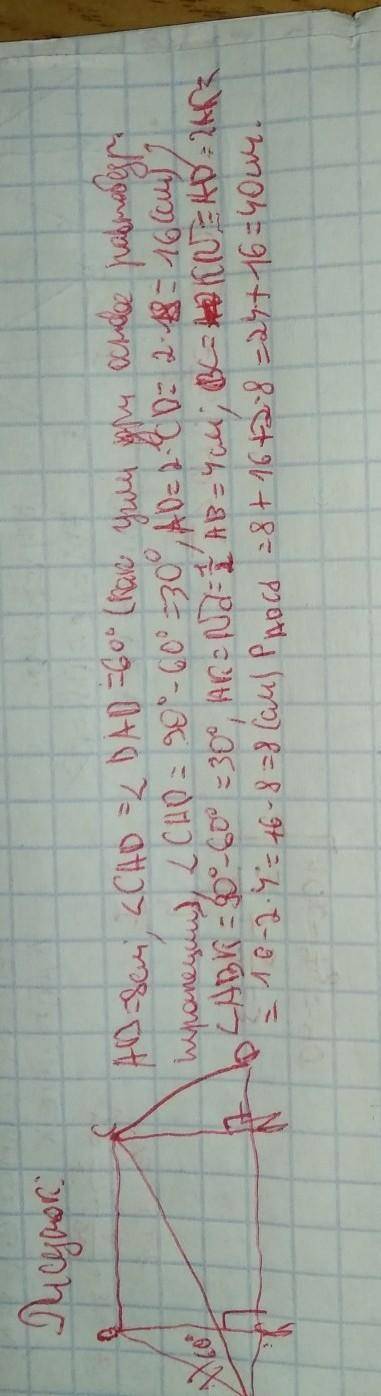 Рисунок:
B
C
60°
K
N
D
AB=8см, <CAD = <BAD =60° (как углы при основе равнобедр.
трапеции), <CAD = 90°-60°=30°, AD=2·CD= 2·8= 16(см)
<ABK = 90°-60° =30°, AK=ND=1/2 AB=4см; BC= KN = AD = 2AK=
= 16-2·4=16-8=8 (см) P = 8+16+2·8 =24+16=40см.